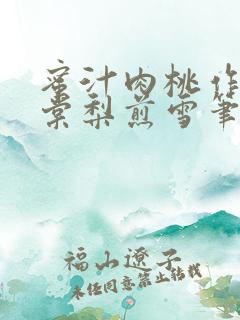 蜜汁肉桃作
棠梨煎雪笔
福山遼子
未经同意禁止转载